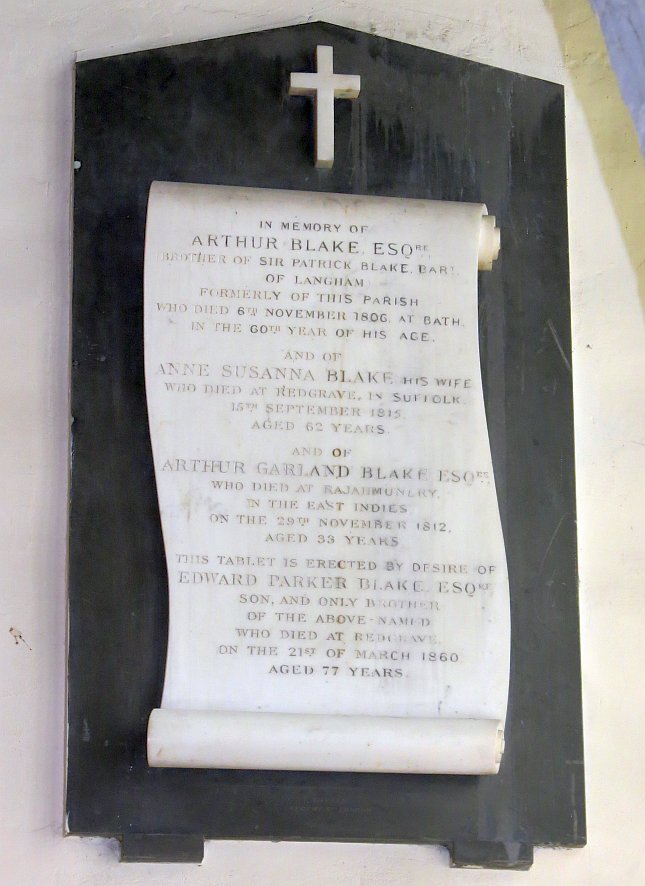 IN MEMORY OF
ARTHUR BLAKE, ESQRE
BROTHER OF SIR PATRICK BLAKE, BART.
OF LANGHAM
FORMERLY OF THIS PARISH
WHO DIED 6TH NOVEMBER 1806, AT BATH,
IN THE 60TH YEAR OF HIS AGE.
AND OF
ANNE SUSANNA BLAKE HIS WIFE
WHO DIED AT REDGRAVE, IN SUFFOLK.
15TH SEPTEMBER 1815.
AGED 62 YEARS.
AND OF
ARTHUR GARLAND BLAKE ESQRE,
WHO DIED AT RAJAHMUNDRY,
IN THE EAST INDIES
ON THE 29TH NOVEMBER 1812,
AGED 33 YEARS
THIS TABLET IS ERECTED BY DESIRE OF
EDWARD PARKER BLAKE, ESQRE
SON, AND ONLY BROTHER
OF THE ABOVE-NAMED
WHO DIED AT REDGRAVE,
ON THE 21ST OF MARCH 1860
AGED 77 YEARS.